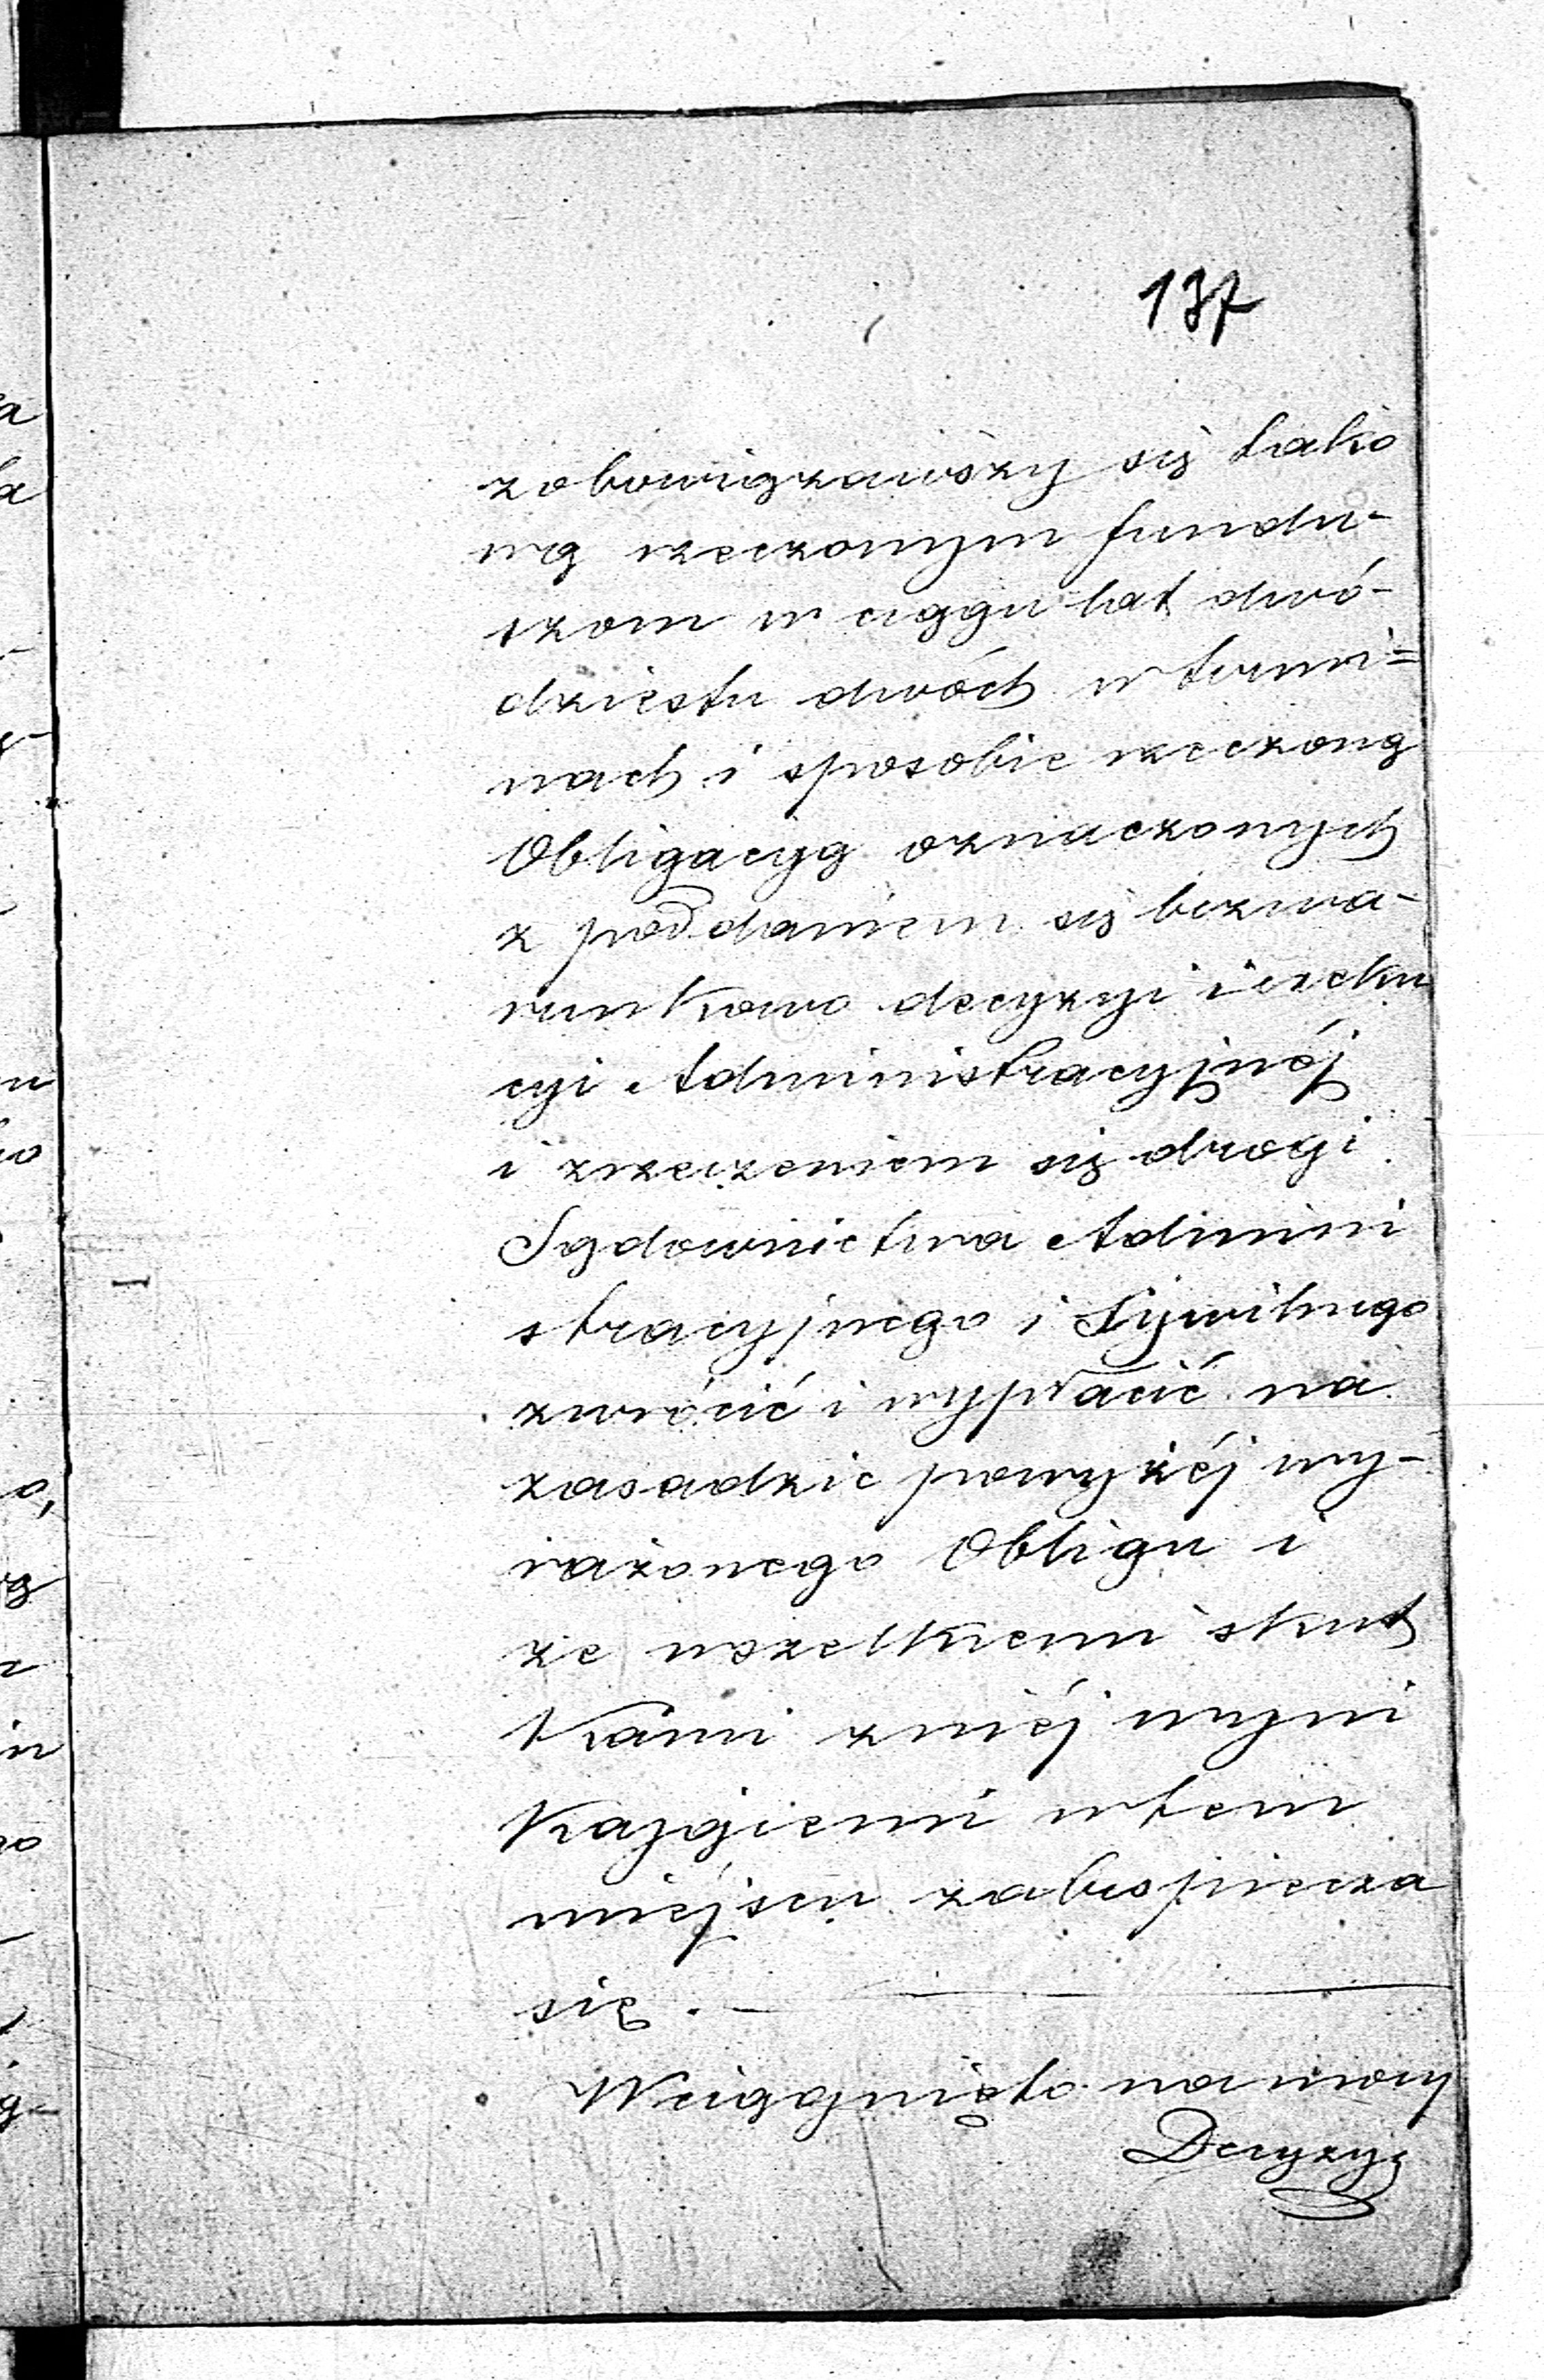 137
zobowiązawszy się tako
wą rzeczonym fundu-
szom w ciągu lat dwó-
dziestu dwóch w termi=
nach i sposobie rzeczoną
Obligacyą oznaczonych
z poddaniem się bezwa-
runkowo decyzyi i exeku
cyi Administracyjnéj
i zrzeczeniem się drogi
Sądownictwa Admini
stracyjnego i Cywilnego
zwrócić i wypłacić na
zasadzie powyżéj wy-
rażonego Obligu i
ze wszelkiemi skut
kami z niéj wyni
kającemi w tem
miéjscu zabespiecza
się. —
Wciągnięto na mocy
Decyzyi